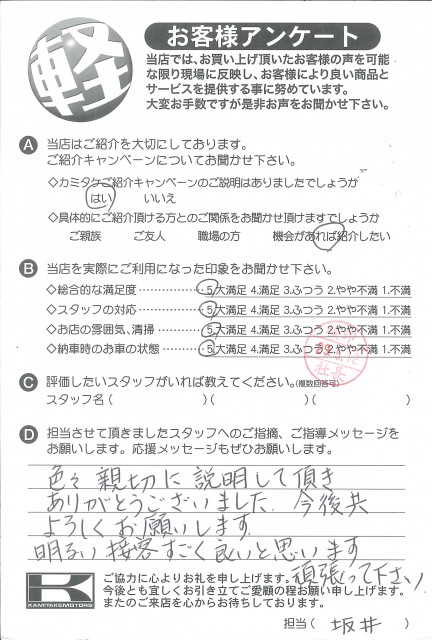 軽
お客様アンケート
当店では、お買い上げ頂いたお客様の声を可能
な限り現場に反映し、お客様により良い商品と
サービスを提供する事に努めています。
大変お手数ですが是非お声をお聞かせ下さい。
A 当店はご紹介を大切にしております。
ご紹介キャンペーンについてお聞かせ下さい。
◇カミタケご紹介キャンペーンのご説明はありましたでしょうか
はい いいえ
◇具体的にご紹介頂ける方とのご関係をお聞かせ頂けますでしょうか
ご親族 ご友人 職場の方 機会があれば紹介したい
B 当店を実際にご利用になった印象をお聞かせ下さい。
◇総合的な満足度…………5.大満足 4.満足 3.ふつう 2.やや不満 1.不満
◇スタッフの対応…………5.大満足 4.満足 3.ふつう 2.やや不満 1.不満
◇お店の雰囲気、清掃………5.大満足 4.満足 3.ふつう 2.やや不満 1.不満
◇納車時のお車の状態………5.大満足 4.満足 3.ふつう 2.やや不満 1.不満
社長
C 評価したいスタッフがいれば教えてください。(複数回答可)
スタッフ名( )( )( )
D 担当させて頂きましたスタッフへのご指摘、ご指導メッセージを
お願いします。応援メッセージもぜひお願いします。
色々親切に説明して頂き
ありがとうございました 今後共
よろしくお願いします
明るい接客すごく良いと思います
頑張って下さい
K
KAMITAKEMOTORS
ご協力に心よりお礼を申し上げます。
今後とも宜しくお引き立てご愛顧の程お願い申し上げます。
またのご来店を心からお待ちしております。
担当( 坂井 )